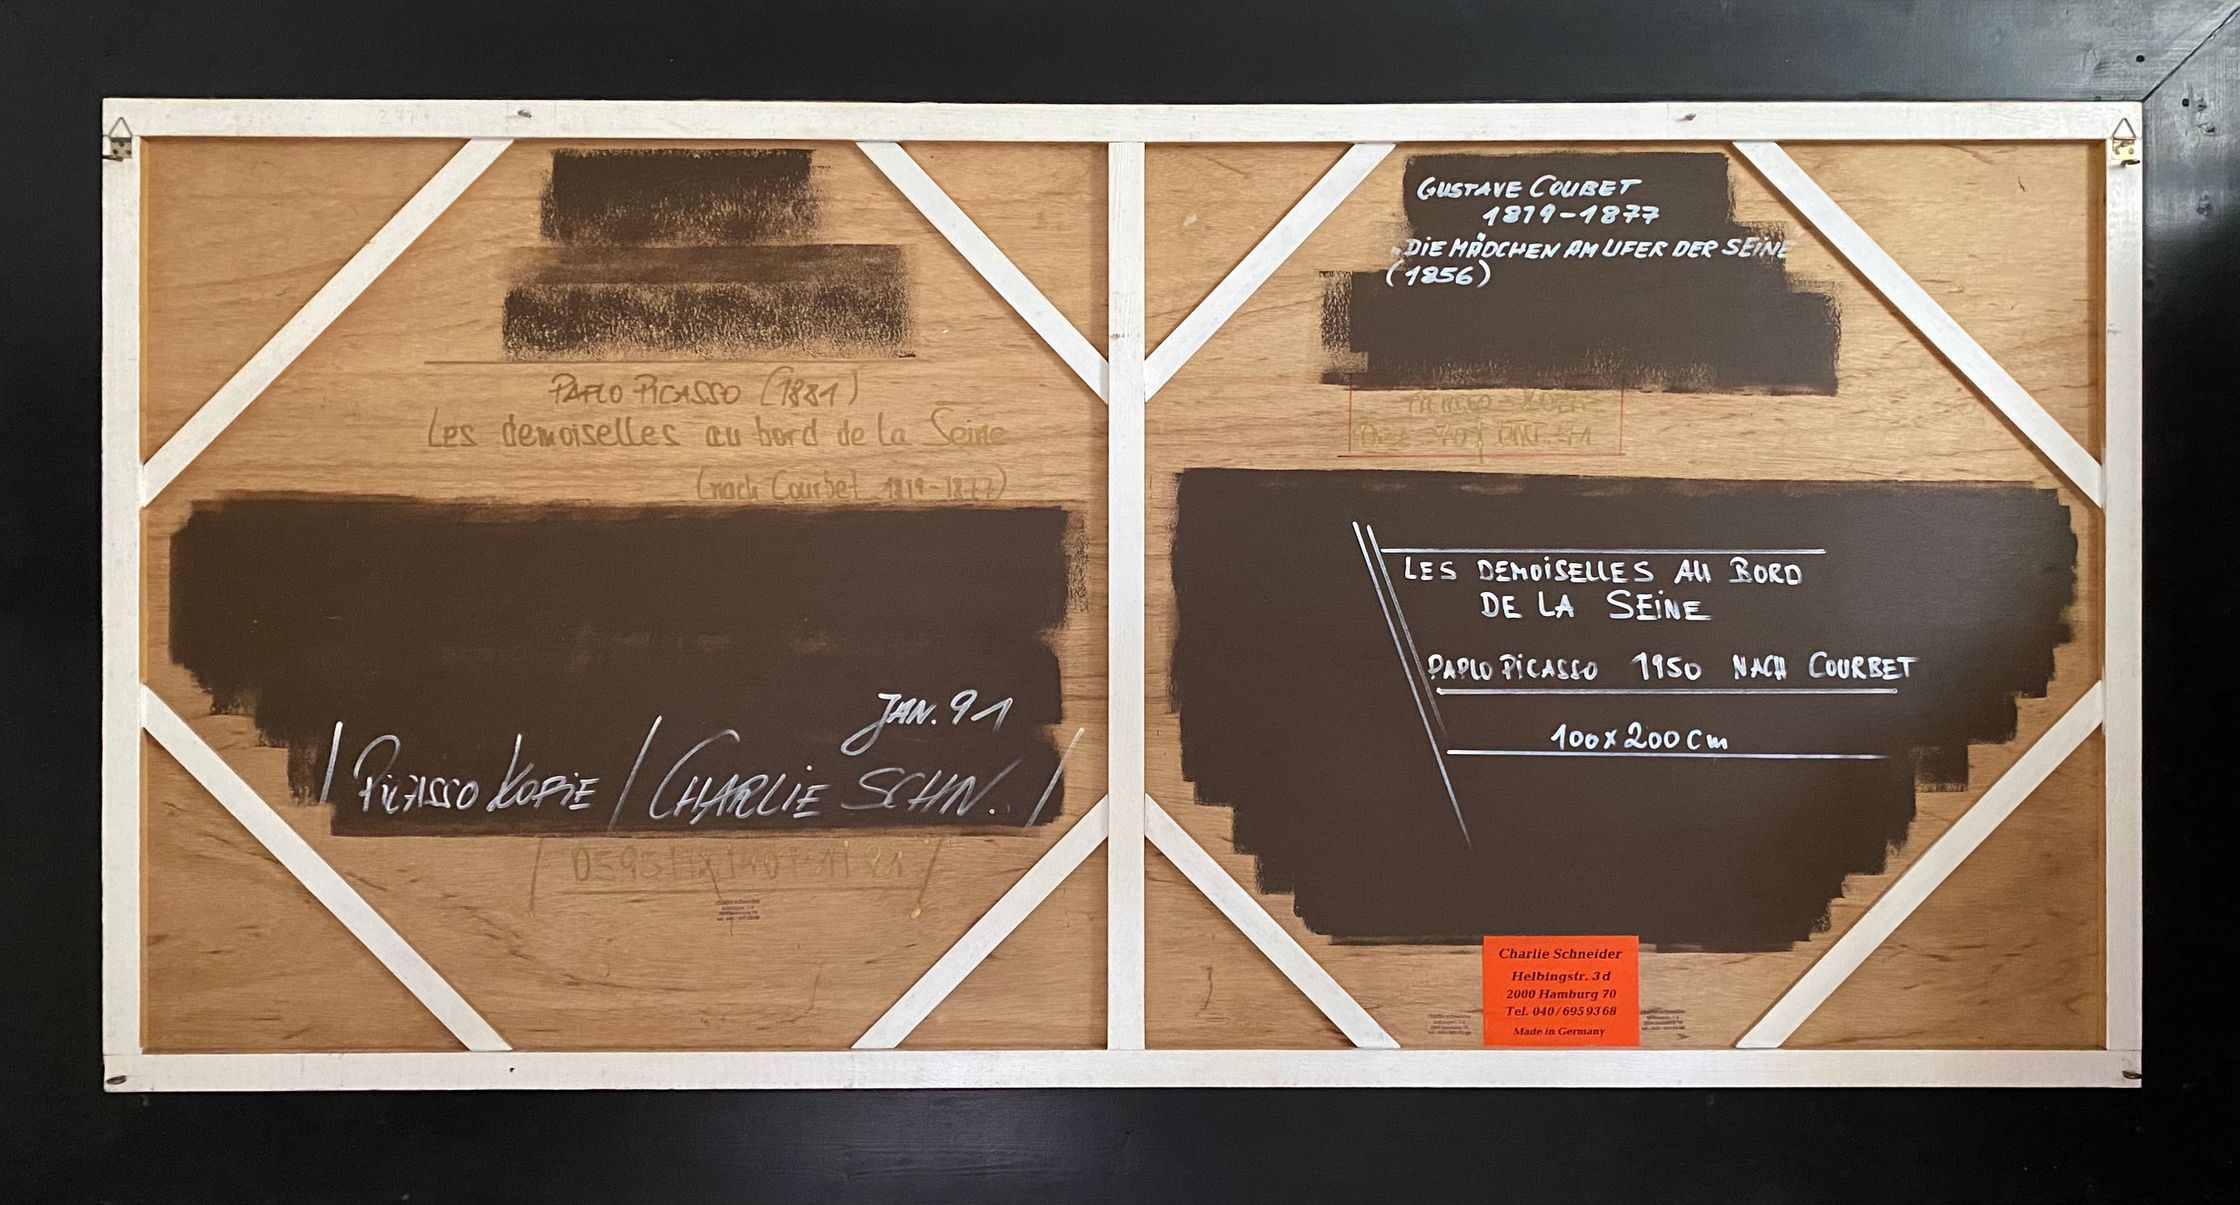 PAPLO PICASSO (1881)
Les demoiselles au bord de la Seine
(nach Courbet 1819-1877)
JAN. 91
/ PICASSO KOPIE / CHARLIE SCHN. /
GUSTAVE COUBET
1819-1877
"DIE MÄDCHEN AM UFER DER SEINE
(1856)
LES DEMOISELLES AU BORD
DE LA SEINE
PAPLO PICASSO 1950 NACH COURBET
100x200 cm
Charlie Schneider
Helbingstr. 3d
2000 Hamburg 70
Tel. 040/6959368
Made in Germany